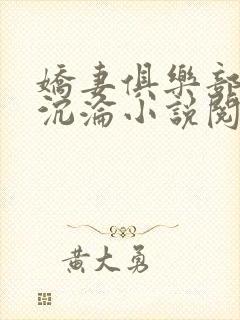 嬌妻俱樂部
沉淪小說閱
黃大勇